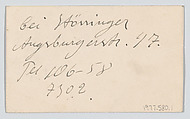 bei Störringer
Augsburgerstr. 47.
Tel 106-58
7502
1977.580.1